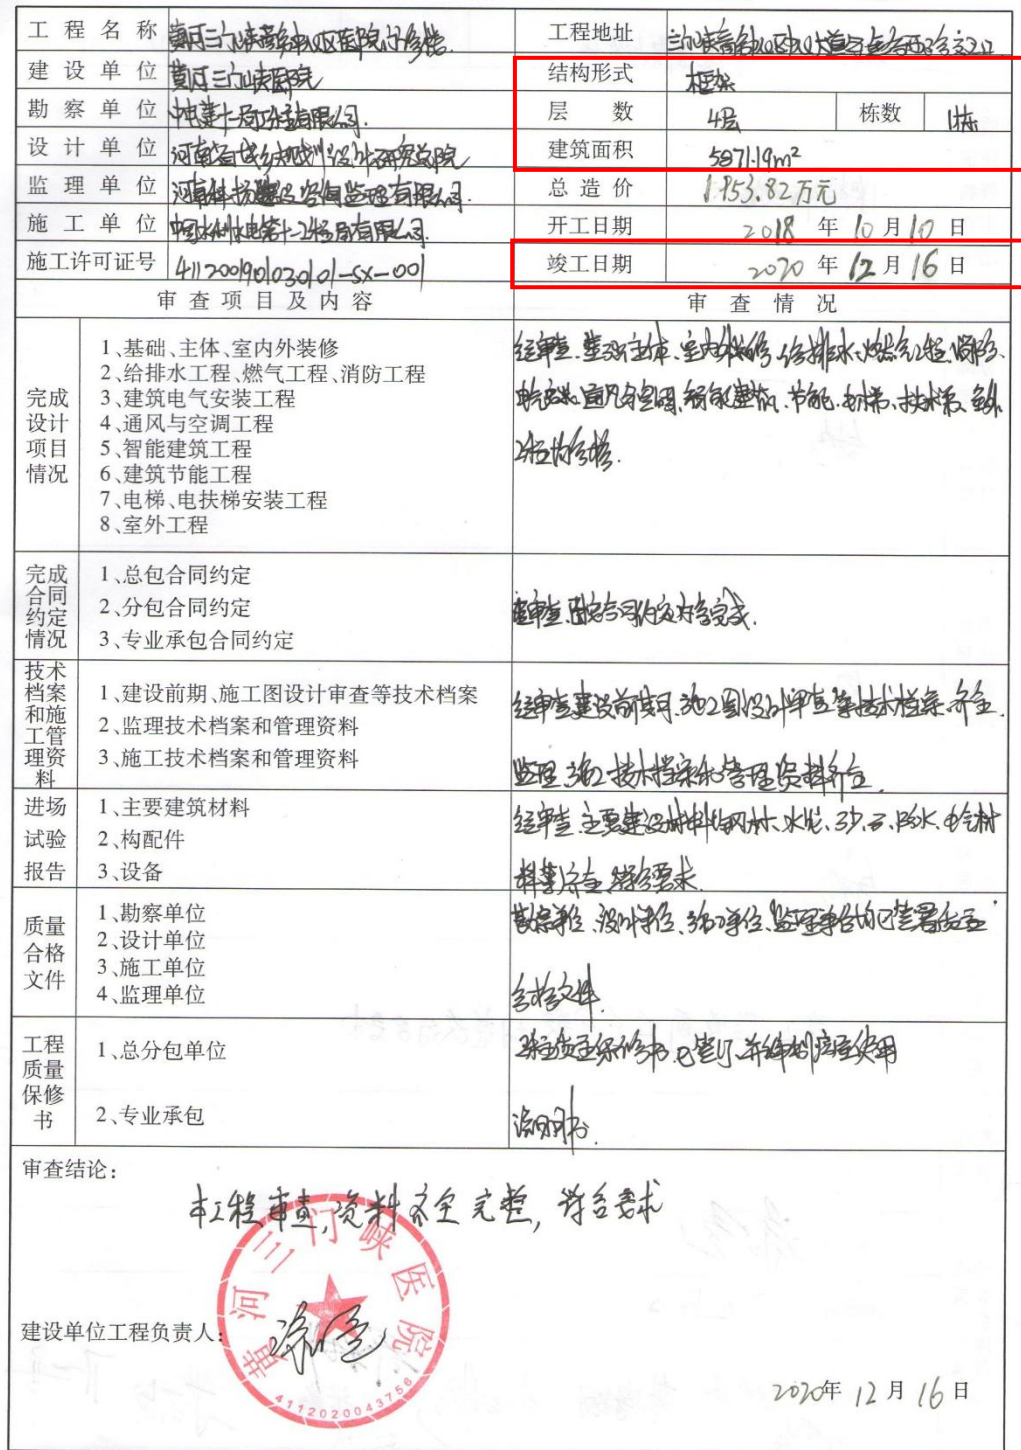 工程名称 黄河三门峡医院高新区医院门诊楼 工程地址
建设单位 黄河三门峡医院 结构形式 框架
勘察单位 中电建十一局工程有限公司. 层数 4层 栋数 1栋
设计单位 河南省城乡规划设计研究总院 建筑面积 5871.19m²
监理单位 总造价 1953.82万元
施工单位 开工日期 2018年10月10日
施工许可证号 4112001901030101-SX-001 竣工日期 2020年12月16日
审查项目及内容 审查情况
完成设计项目情况
1、基础、主体、室内外装修
2、给排水工程、燃气工程、消防工程
3、建筑电气安装工程
4、通风与空调工程
5、智能建筑工程
6、建筑节能工程
7、电梯、电扶梯安装工程
8、室外工程
经审查,基础、主体、室内外装修、给排水、燃气工程、消防、
电气安装、通风与空调、智能建筑、节能、电梯、扶梯、室外
工程均合格.
完成合同约定情况
1、总包合同约定
2、分包合同约定
3、专业承包合同约定
技术档案和施工管理资料
1、建设前期、施工图设计审查等技术档案
2、监理技术档案和管理资料
3、施工技术档案和管理资料
经审查建设前期、施工图设计审查等技术档案齐全.
监理、施工技术档案和管理资料齐全.
进场试验报告
1、主要建筑材料
2、构配件
3、设备
经审查,主要建设材料钢材、水泥、砂、石、防水、电气材
料等齐全,符合要求.
质量合格文件
1、勘察单位
2、设计单位
3、施工单位
4、监理单位
勘察单位、设计单位、施工单位、监理单位均已签署质量
合格文件.
工程质量保修书
1、总分包单位
2、专业承包
工程质量保修书已签订,并编制房屋使用
说明书.
审查结论:
本工程审查,资料齐全完整,符合要求
黄河三门峡医院
4112020043756
建设单位工程负责人:
2020年12月16日